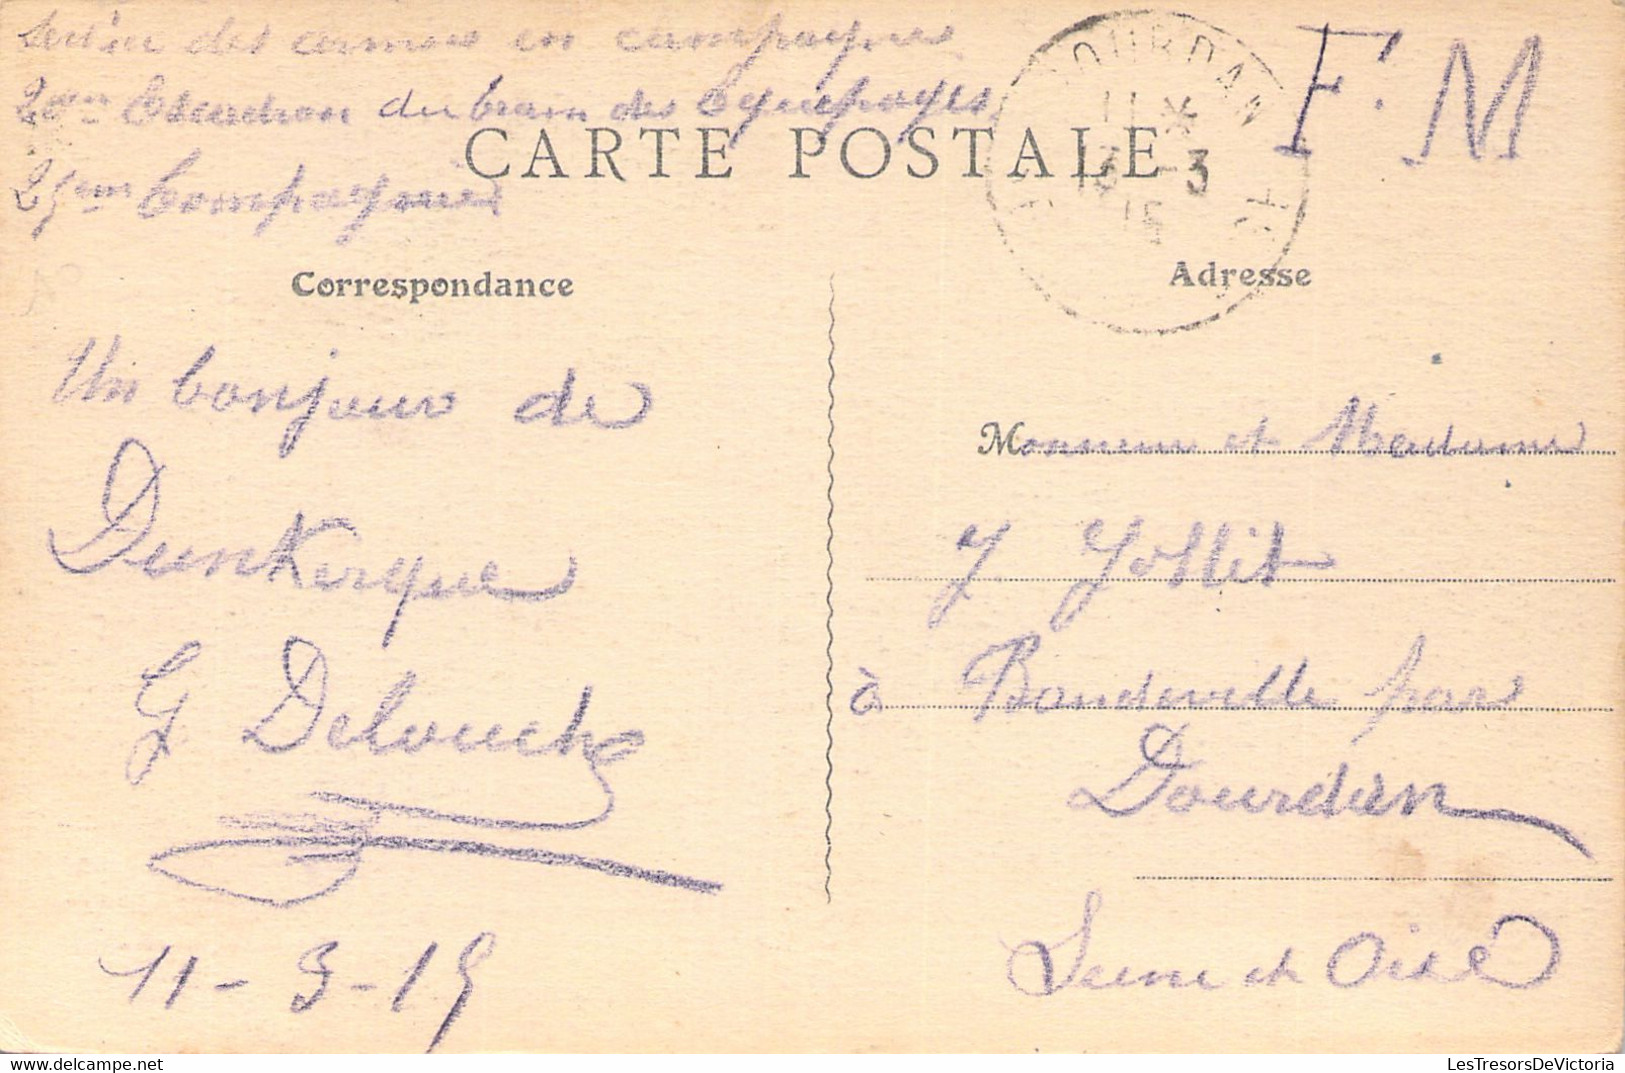 Service des armées en campagne
20ème Escadron du train des Equipages
25ème Compagnie
F. M
CARTE POSTALE
DOURDAN
11 *
13 -3
15
Correspondance
Adresse
Un bonjour de
Dunkerque
G Delouche
11-3-15
Monsieur et Madame
J Jollit
à Bandeville par
Dourdan
Seine et Oise
LesTresorsDeVictoria